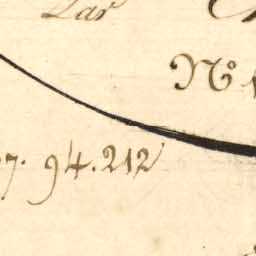 Lar
N.º
7. 94.212